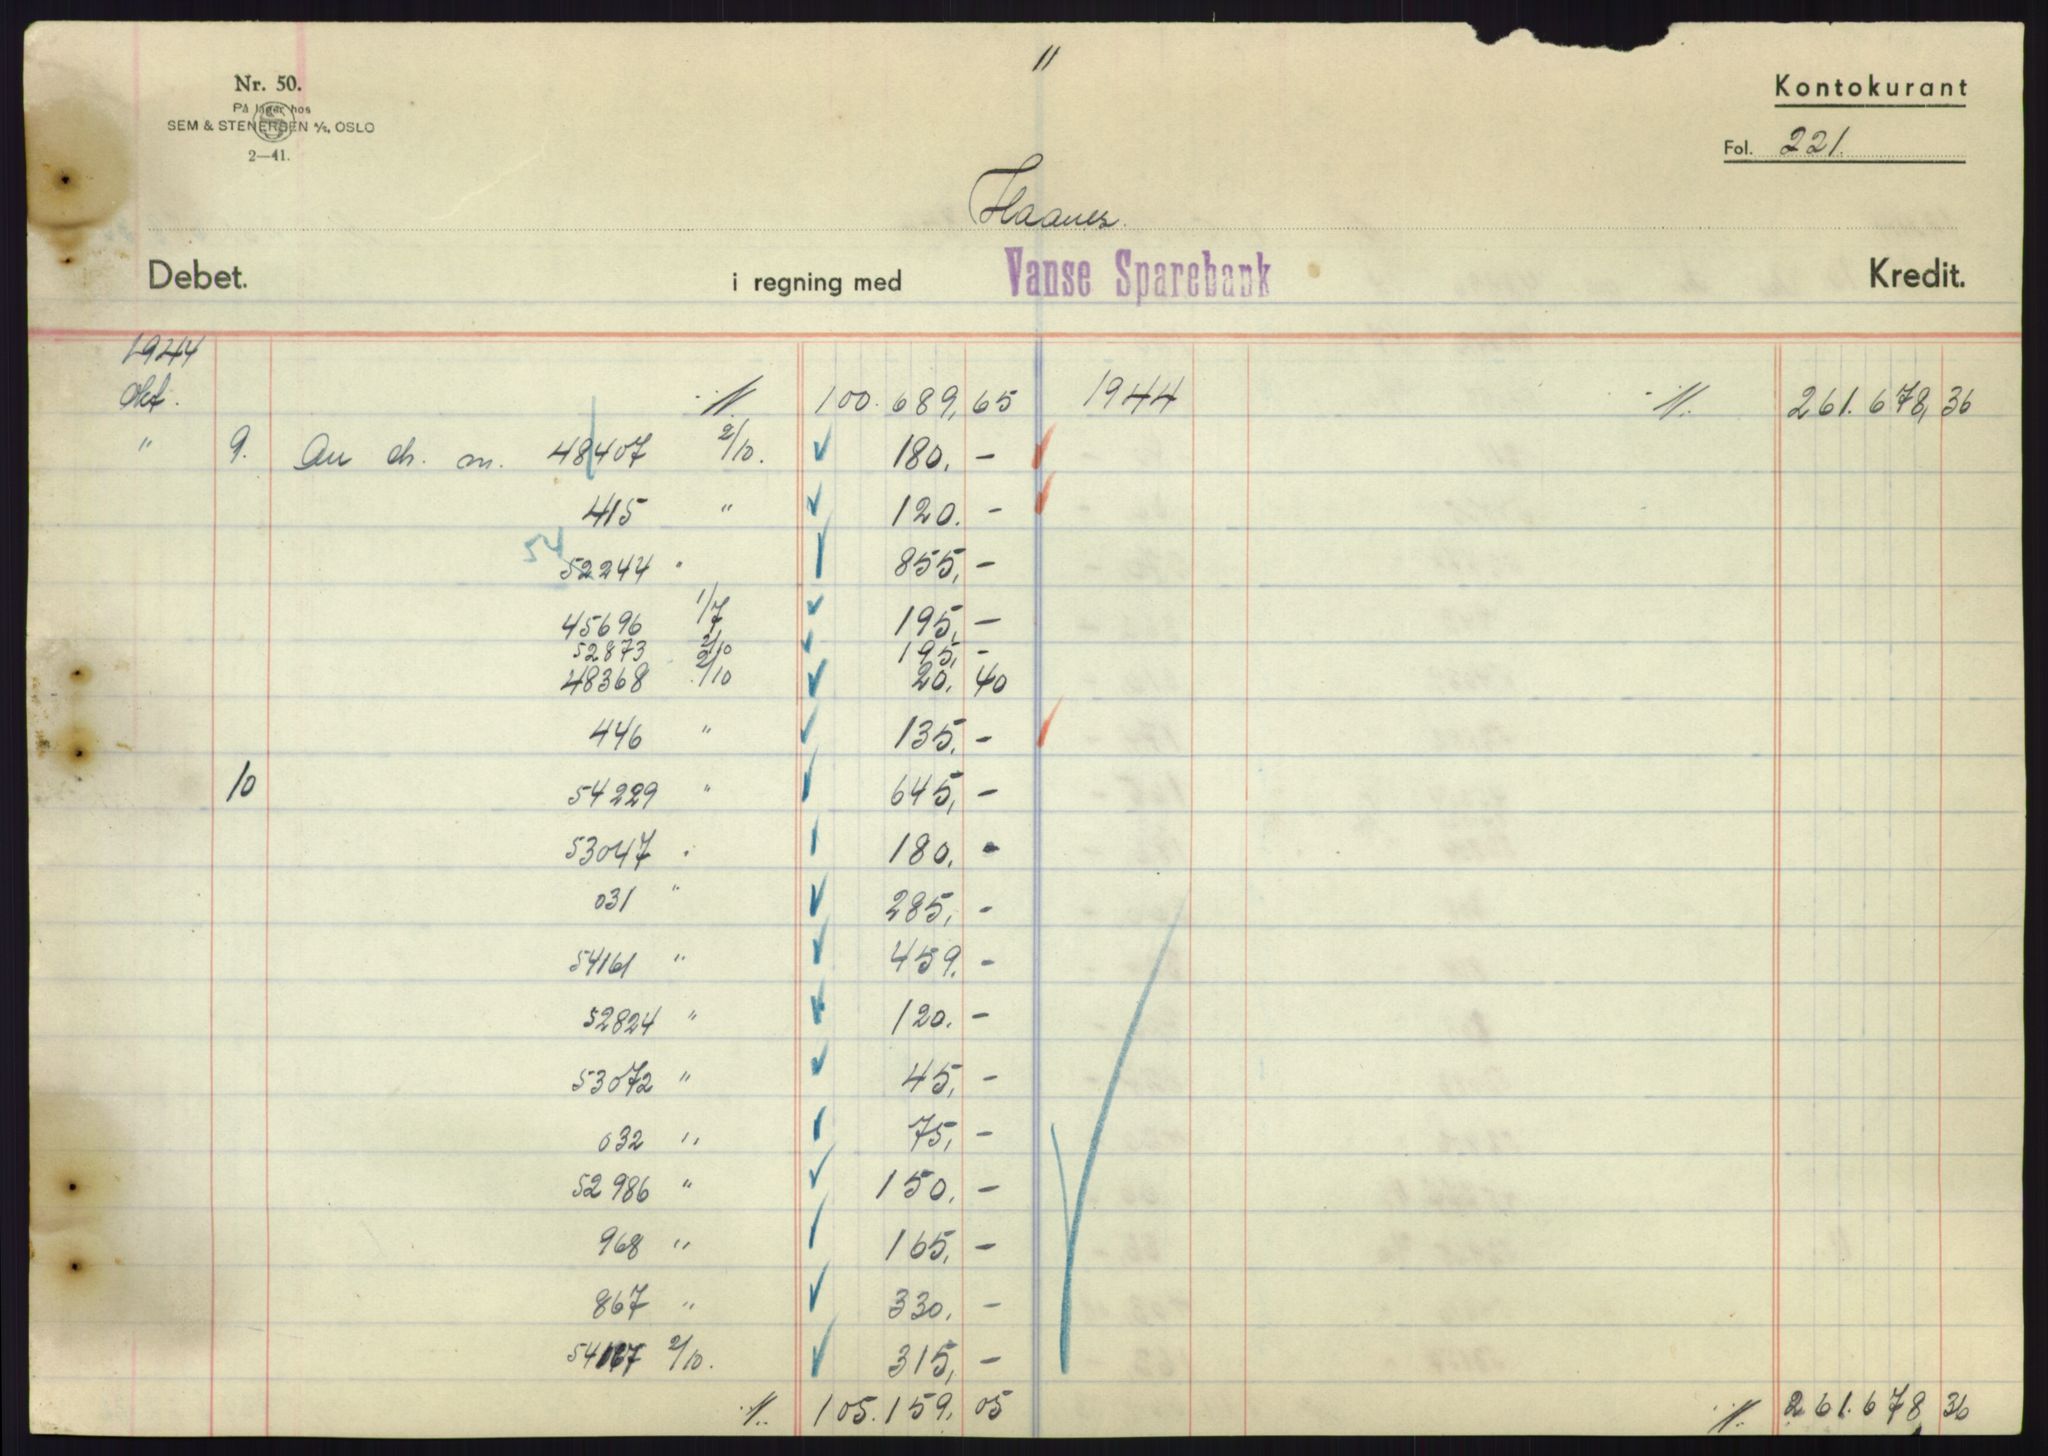 11
Nr. 50.
På lager hos
SEM & STENERSEN A/S, OSLO
2—41.
Kontokurant
Fol. 221.
Haanes.
Debet. i regning med Vanse Sparebank Kredit.
1944
Okt. 100.689,65 1944 261.678,36
" 9. An ch. m. 48407 2/10. 180,-
415 " 120.-
54
52244 " 855,-
45696 1/7 195,-
52873 2/10 195,-
48368 2/10 20,40
446 " 135,-
10 54229 " 645,-
53047 " 180,-
031 " 285,-
54161 " 459,-
52824 " 120.-
53072 " 45,-
032 " 75,-
52986 " 150,-
968 " 165,-
867 " 330,-
54167 2/10. 315,-
105.159,05 261.678,36